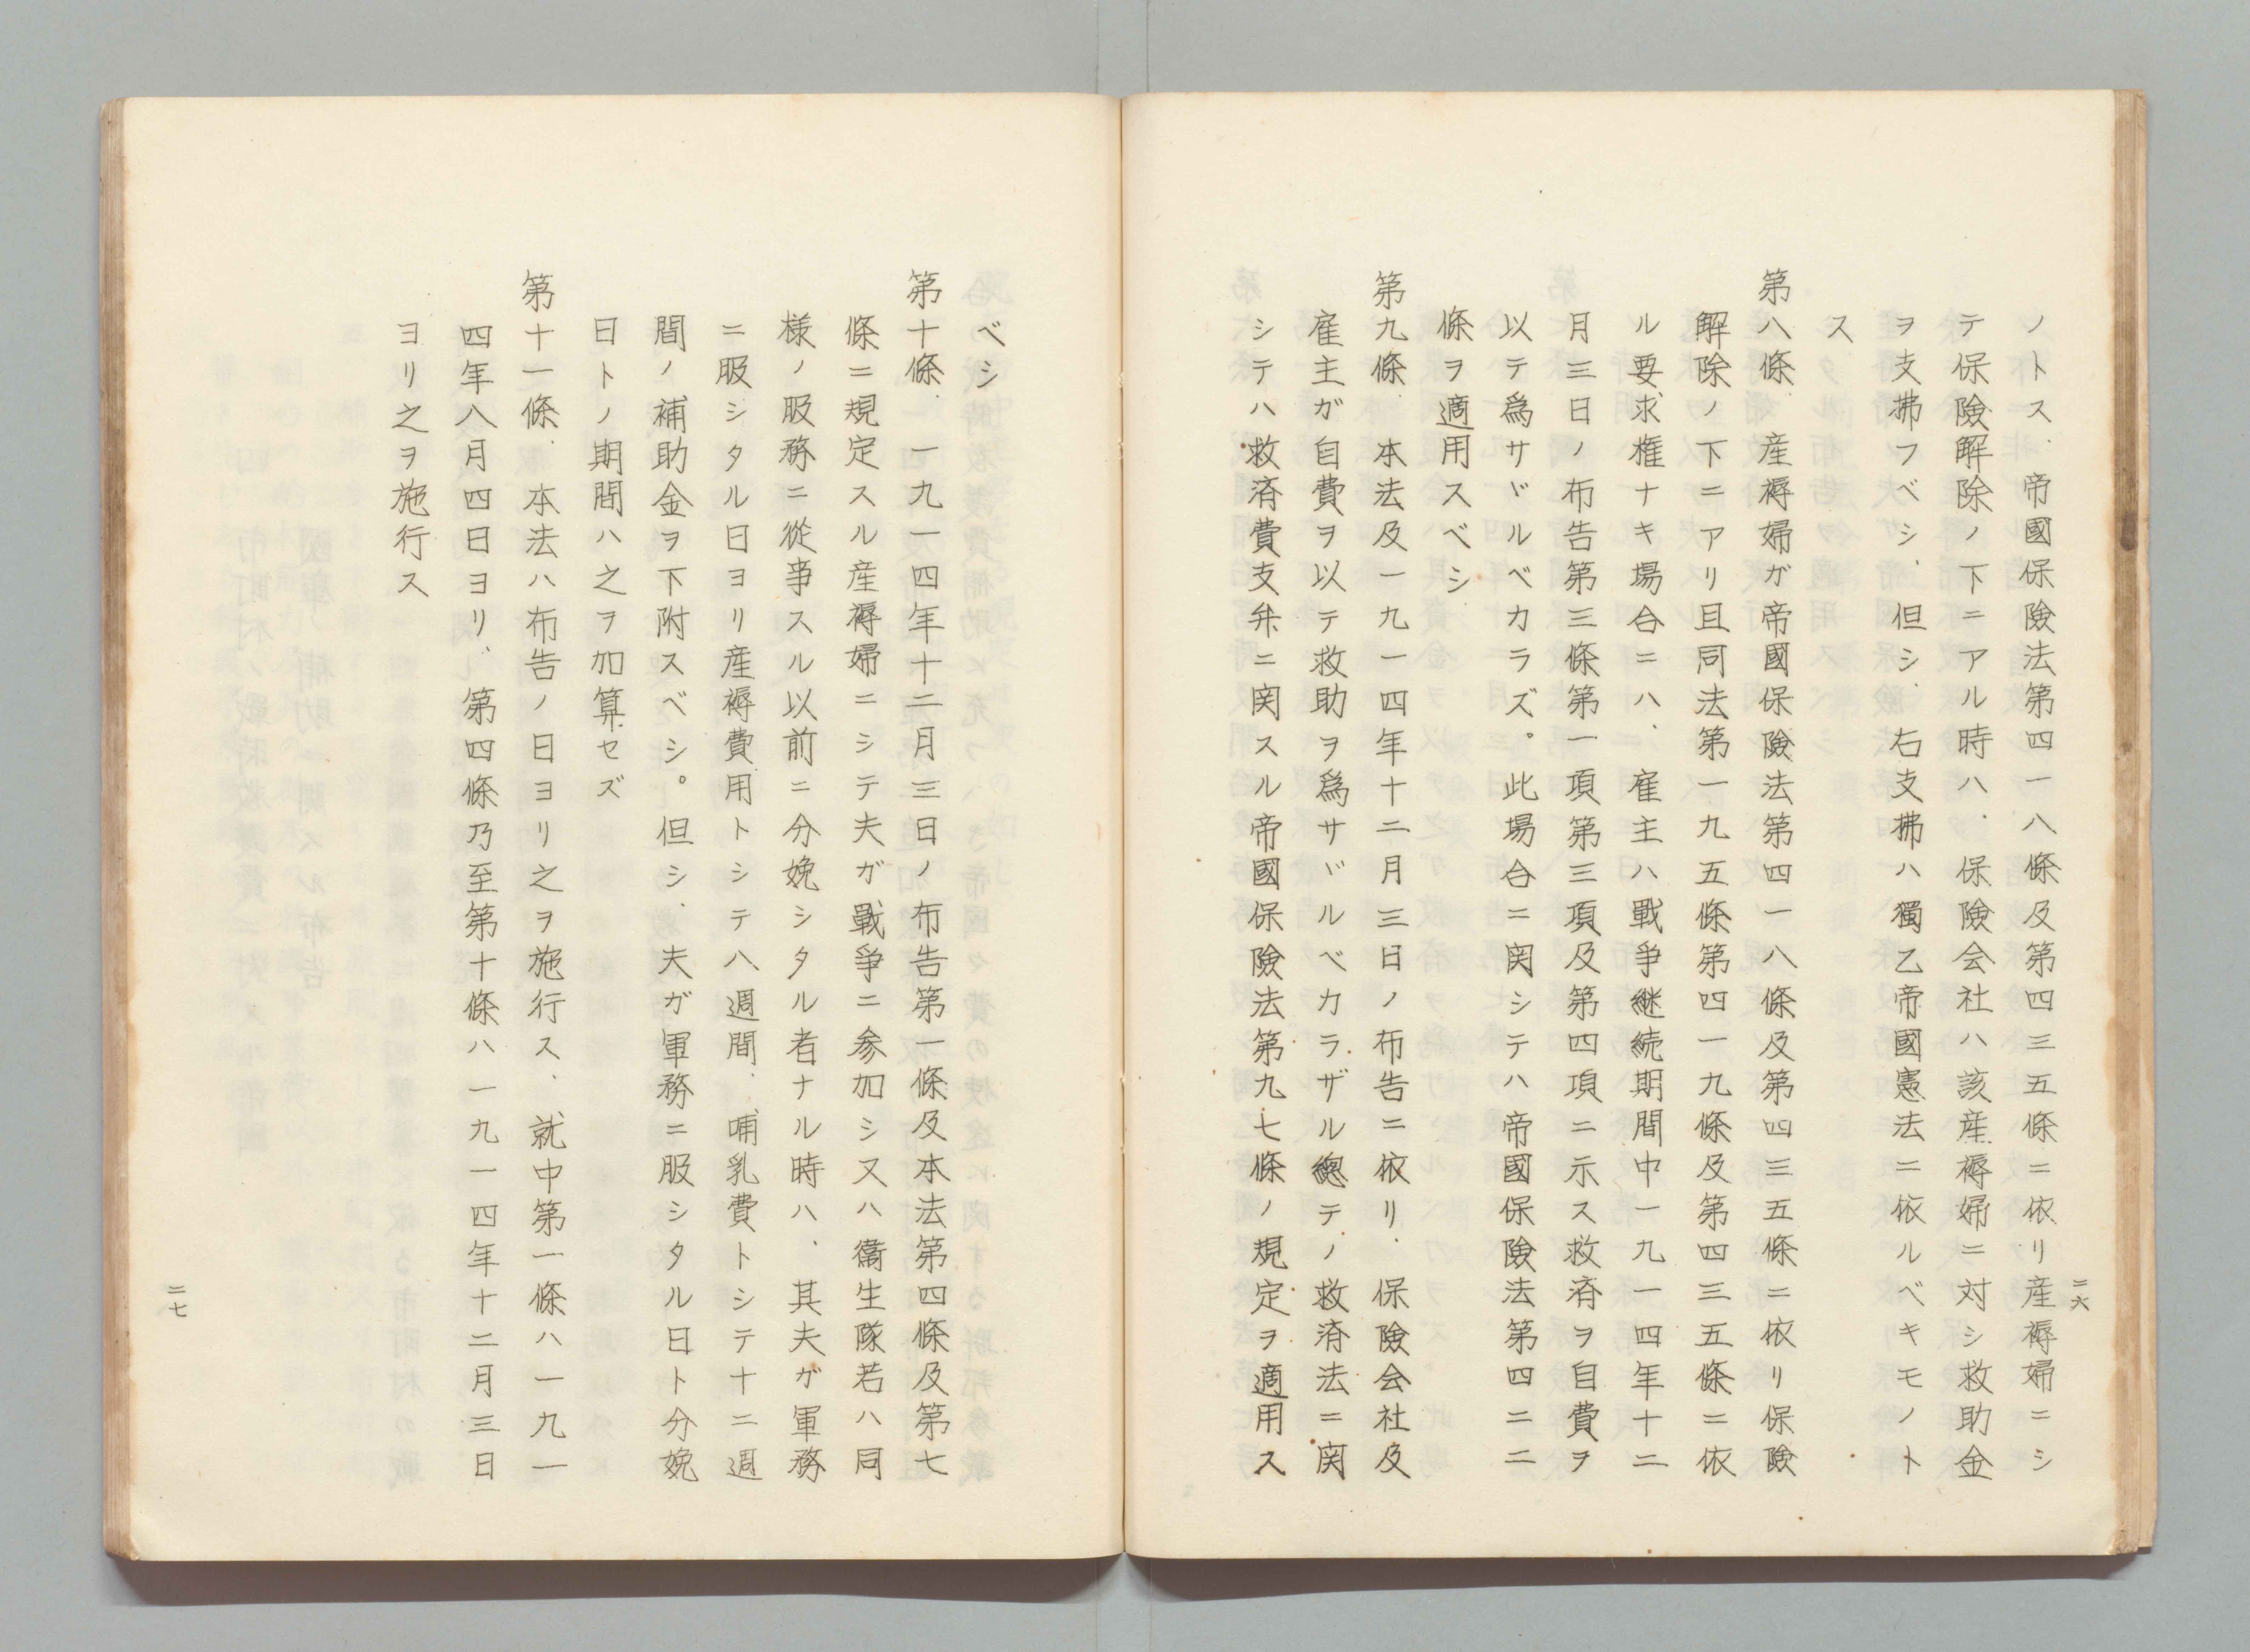 ノトス、帝國保險法第四一八條及第四三五條ニ依リ産褥婦ニシ
テ保險解除ノ下ニアル時ハ、保險会社ハ該産褥婦ニ対シ救助金
ヲ支拂フベシ、但シ、右支拂ハ獨乙帝國憲法ニ依ルベキモノト
ス
第八條、産褥婦ガ帝國保險法第四一八條及第四三五條ニ依リ保險
解除ノ下ニアリ且同法第一九五條第四一九條及第四三五條ニ依
ル要求権ナキ場合ニハ、雇主ハ戰争継続期間中一九一四年十二
月三日ノ布告第三條第一項第三項及第四項ニ示ス救済ヲ自費ヲ
以テ爲サヾルベカラズ。此場合ニ関シテハ帝國保險法第四二二
條ヲ適用スベシ
第九條、本法及一九一四年十二月三日ノ布告ニ依リ、保險会社及
雇主ガ自費ヲ以テ救助ヲ爲サヾルベカラザル總テノ救済法ニ関
シテハ救済費支弁ニ関スル帝國保險法第九七條ノ規定ヲ適用ス
二六
ベシ
第十條、一九一四年十二月三日ノ布告第一條及本法第四條及第七
條ニ規定スル産褥婦ニシテ夫ガ戰争ニ参加シ又ハ衞生隊若ハ同
様ノ服務ニ從事スル以前ニ分娩シタル者ナル時ハ、其夫ガ軍務
ニ服シタル日ヨリ産褥費用トシテ八週間、哺乳費トシテ十二週
間ノ補助金ヲ下附スベシ。但シ、夫ガ軍務ニ服シタル日ト分娩
日トノ期間ハ之ヲ加算セズ
第十一條、本法ハ布告ノ日ヨリ之ヲ施行ス、就中第一條ハ一九一
四年八月四日ヨリ、第四條乃至第十條ハ一九一四年十二月三日
ヨリ之ヲ施行ス
二七